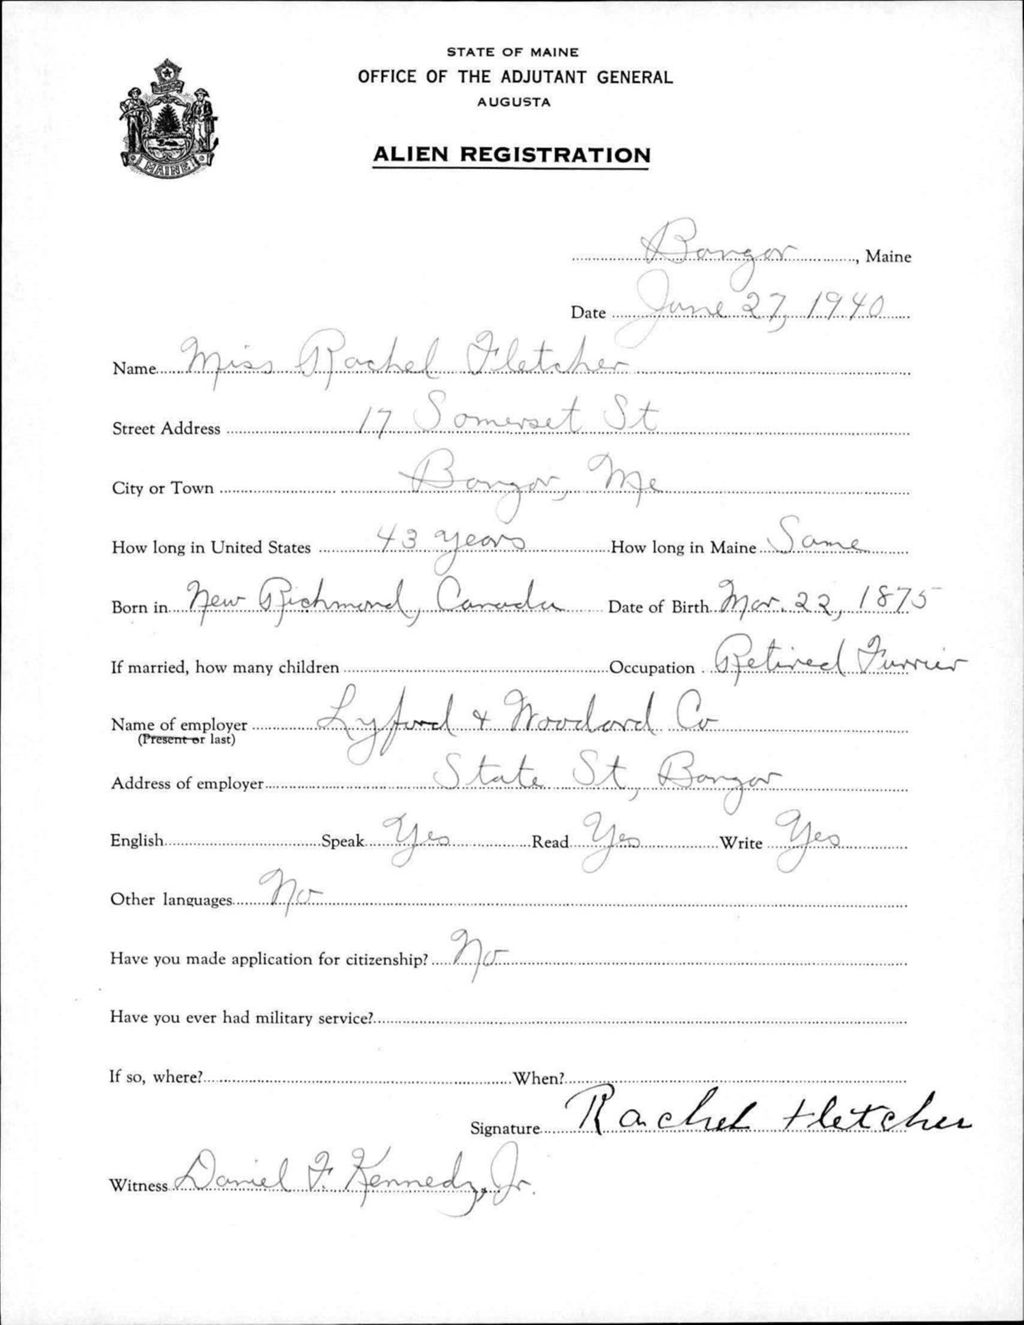 STATE OF MAINE
OFFICE OF THE ADJUTANT GENERAL
AUGUSTA
ALIEN REGISTRATION
MAINE
Bangor, Maine
Date June 27, 1940
Name Miss Rachel Fletcher
Street Address 17 Somerset St
City or Town Bangor, Me
How long in United States 43 years How long in Maine Same
Born in New Richmond, Canada Date of Birth Mar. 22, 1875
If married, how many children Occupation Retired Furrier
Name of employer Lyford & Woodard Co
(Present or last)
Address of employer State St, Bangor
English Speak Yes Read Yes Write Yes
Other languages No
Have you made application for citizenship? No
Have you ever had military service?
If so, where? When?
Signature Rachel Fletcher
Witness Daniel F. Kennedy, Jr.